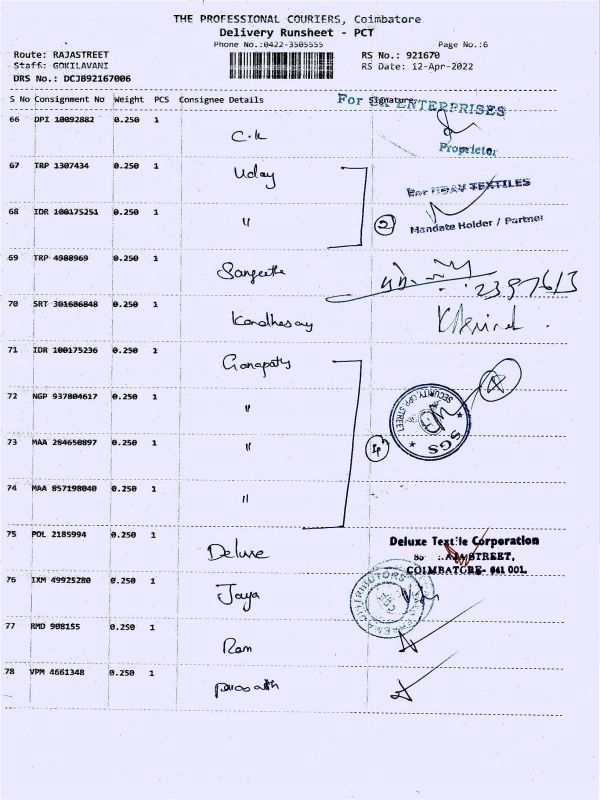 THE PROFESSIONAL COURIERS, Coimbatore
Delivery Runsheet - PCT
Phone No.:0422-3505555
Page No.:6
Route: RAJASTREET
RS No.: 921670
Staff: GOKILAVANI
RS Date: 12-Apr-2022
DRS No.: DCJ892167006
S No Consignment No Weight PCS Consignee Details Signature
For ENTERPRISES
66 DPI 10092882 0.250 1 C.K
Proprietor
67 TRP 1307434 0.250 1 Uday
For UDAY TEXTILES
68 IDR 100175251 0.250 1 " 2
Mandate Holder / Partner
69 TRP 4988969 0.250 1 Sangeetha
70 SRT 301686848 0.250 1 Kandhasamy
71 IDR 100175236 0.250 1 Ganapathy
72 NGP 937804617 0.250 1 "
73 MAA 284650897 0.250 1 " 4
SGS
SECURITY, OPP. STREET
74 MAA 857198040 0.250 1 "
75 POL 2185994 0.250 1 Deluxe
Deluxe Textile Corporation
STREET,
COIMBATORE- 641 001.
76 IXM 49925280 0.250 1 Jaya
DISTRIBUTORS
77 RMD 908155 0.250 1 Ram
78 VPM 4661348 0.250 1 Prasath